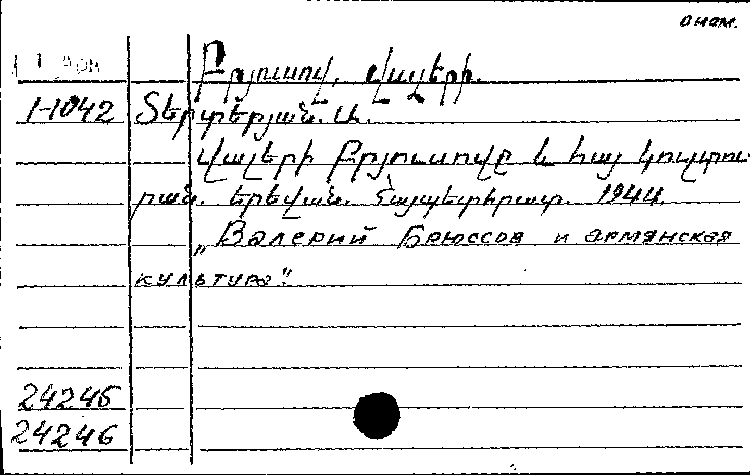 анам.
Բրյուսով, Վալերի.
1-1042 Տերտերյան. Ա.
Վալերի Բրյուսովը և հայ կուլտու
րան. Երեվան. Հայպետհրատ. 1944.
„Валерий Брюссов и армянская
культура".
24245
24246